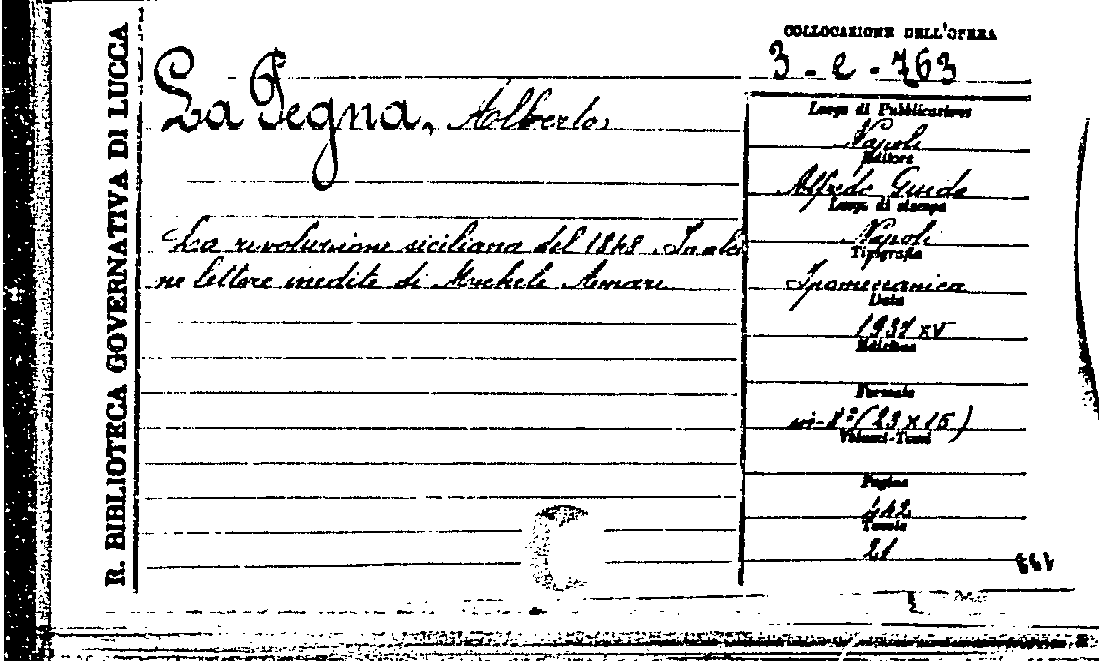 R. BIBLIOTECA GOVERNATIVA DI LUCCA
La Pegna, Alberto,
La rivoluzione siciliana del 1848. In alcu
ne lettere inedite di Michele Amari
COLLOCAZIONE DELL'OPERA
3-e-763
Luogo di Pubblicazione
Napoli
Editore
Alfredo Guida
Luogo di stampa
Napoli
Tipografia
Ipomeccanica
Data
1937 XV
Edizione
Formato
in-8° (23 x 15)
Volumi-Tomi
Pagine
442
Tavole
21